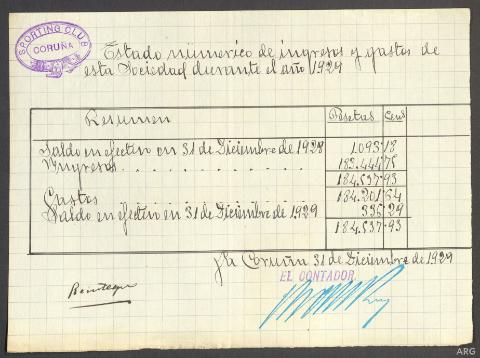 SPORTING CLUB
CORUÑA
Estado númerico de ingresos y gastos de
esta Sociedad durante el año 1929
Resumen Pesetas Cents
Saldo en efectivo en 31 de Diciembre de 1928 1.093 18
Ingresos . . . . . . . . . . . 183.444 75
184.537 93
Gastos 184.201 64
Saldo en efectivo en 31 de Diciembre de 1929 336 29
184.537 93
La Coruña 31 de Diciembre de 1929
EL CONTADOR
ARG